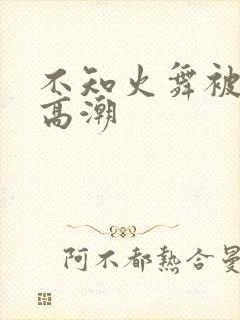 不知火舞被
高潮
阿不都热合曼